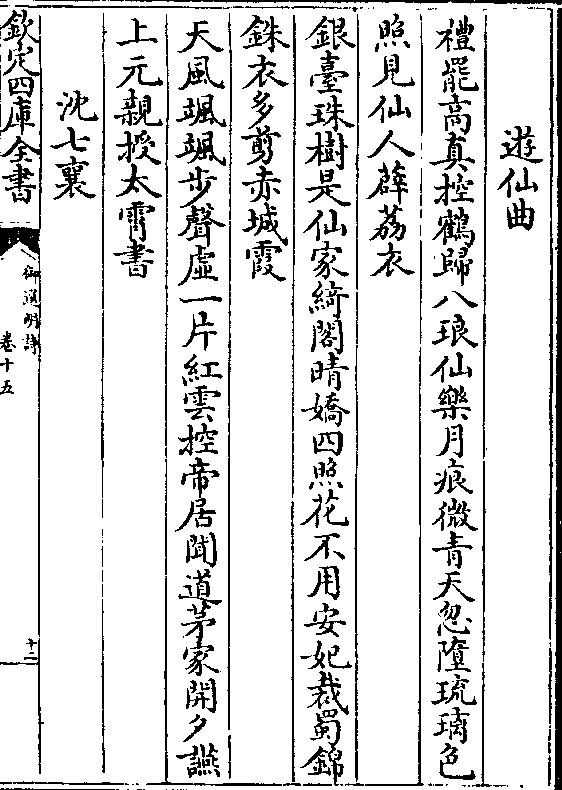 遊仙曲
禮罷高真控鶴歸八琅仙樂月痕微青天忽墮琉璃色
照見仙人薜荔衣
銀臺珠樹是仙家綺閣晴嬌四照花不用安妃裁蜀錦
銖衣多剪赤城霞
天風颯颯步聲虛一片紅雲控帝居聞道茅家開夕讌
上元親授太霄書
沈七襄
欽定四庫全書
御選明詩
卷十五
十二